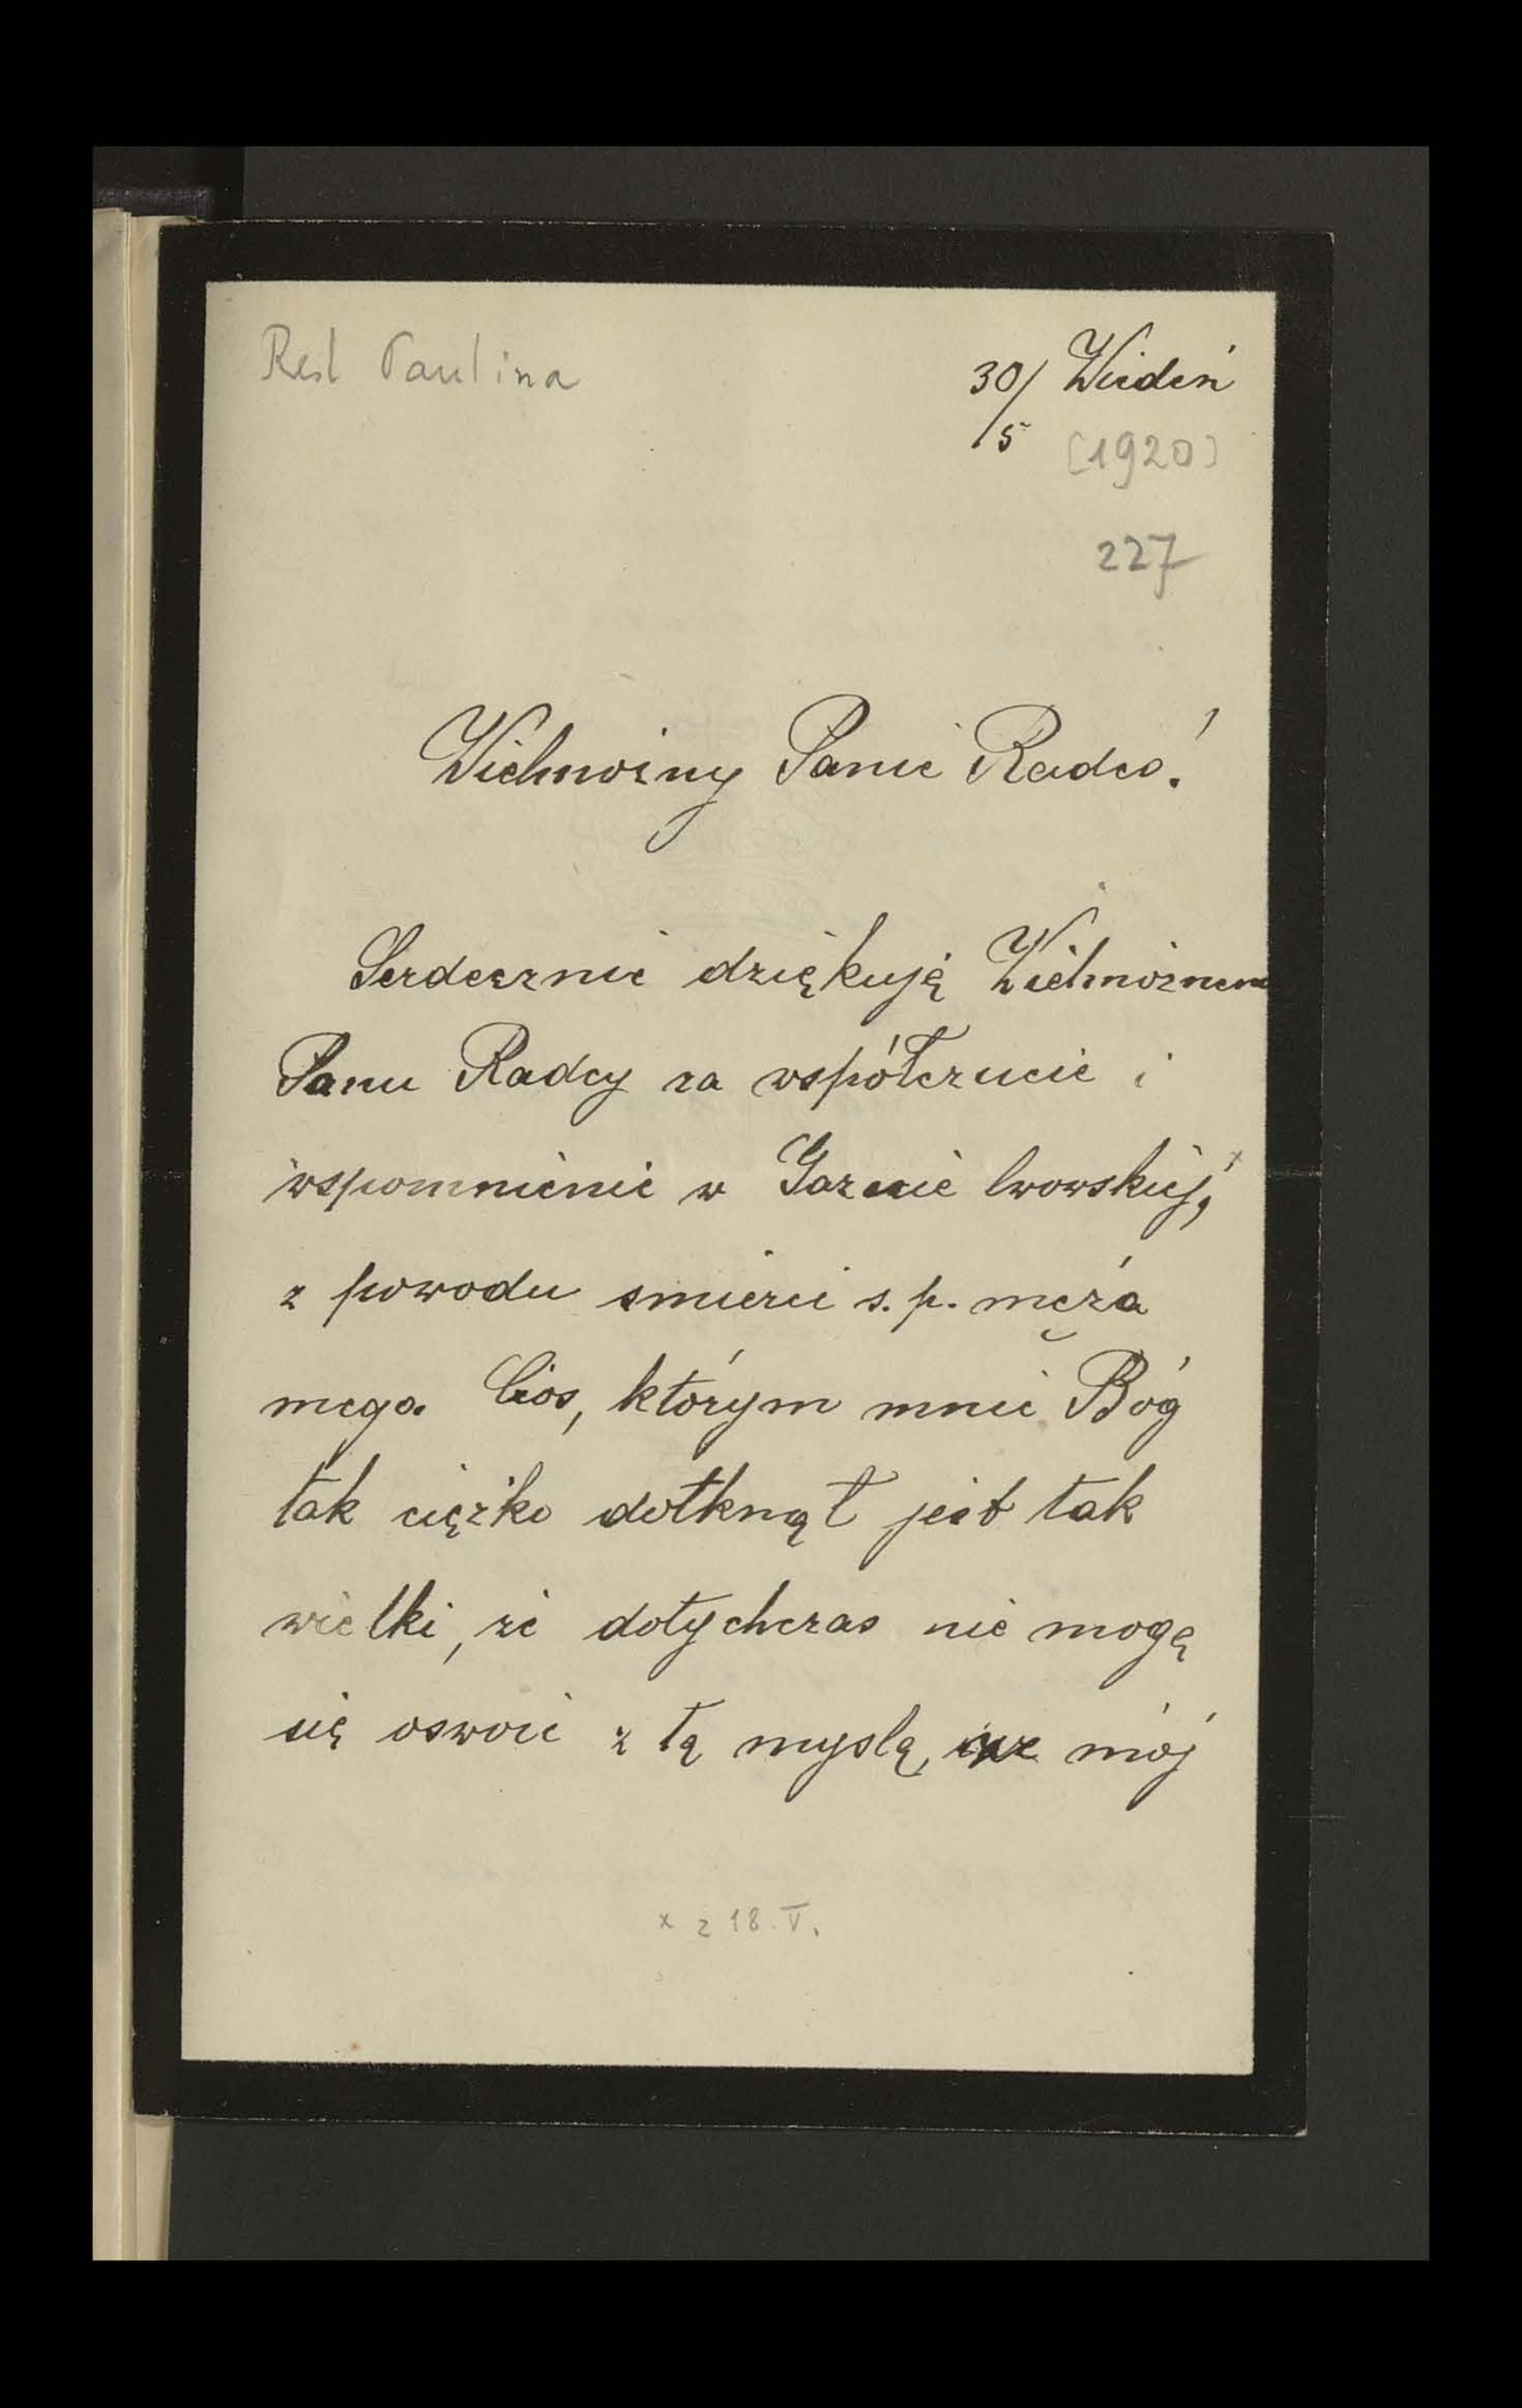 Resl Paulina
30/5 Wiedeń
[1920]
227
Wielmożny Panie Radco!
Serdecznie dziękuję Wielmożnemu
Panu Radcy za współczucie i
wspomnienie w Gazecie lwowskiej, x
z powodu smierci s. p. męża
mego. Cios, którym mnie Bóg
tak ciężko dotknął jest tak
wielki, że dotychczas nie mogę
się oswoić z tą myslą, że mój
x z 18. V.